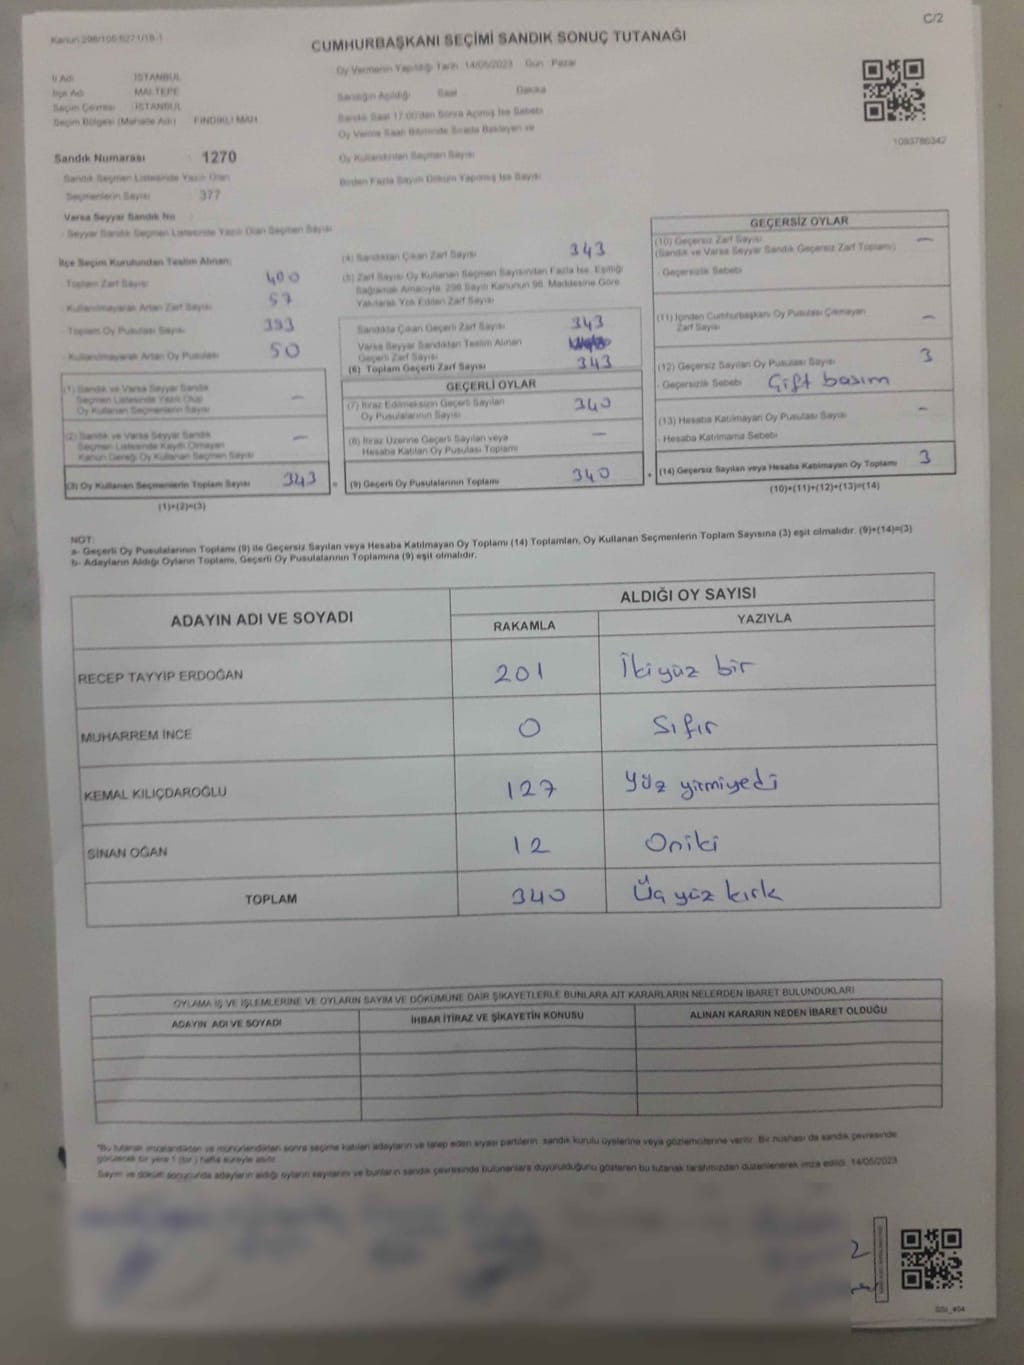 C/2
Kanun 298/105 6271/18-1
CUMHURBAŞKANI SEÇİMİ SANDIK SONUÇ TUTANAĞI
Oy Vermenin Yapıldığı Tarih :14/05/2023 Gün : Pazar
İl Adı : İSTANBUL
İlçe Adı : MALTEPE
Seçim Çevresi : İSTANBUL
Seçim Bölgesi (Mahalle Adı) : FINDIKLI MAH.
Sandığın Açıldığı Saat Dakika
Sandık Saat 17:00'den Sonra Açılmış İse Sebebi
Oy Verme Saati Bitiminde Sırada Bekleyen ve
Oy Kullandırılan Seçmen Sayısı
Birden Fazla Sayım Döküm Yapılmış İse Sayısı
1093786342
Sandık Numarası : 1270
- Sandık Seçmen Listesinde Yazılı Olan
Seçmenlerin Sayısı : 377
Varsa Seyyar Sandık No
- Seyyar Sandık Seçmen Listesinde Yazılı Olan Seçmen Sayısı
İlçe Seçim Kurulundan Teslim Alınan;
- Toplam Zarf Sayısı 400
- Kullanılmayarak Artan Zarf Sayısı 57
- Toplam Oy Pusulası Sayısı 393
- Kullanılmayarak Artan Oy Pusulası 50
(1) Sandık ve Varsa Seyyar Sandık
Seçmen Listesinde Yazılı Olup
Oy Kullanan Seçmenlerin Sayısı —
(2) Sandık ve Varsa Seyyar Sandık
Seçmen Listesinde Kayıtlı Olmayan
Kanun Gereği Oy Kullanan Seçmen Sayısı —
(3) Oy Kullanan Seçmenlerin Toplam Sayısı 343
(1)+(2)=(3)
(4) Sandıktan Çıkan Zarf Sayısı 343
(5) Zarf Sayısı Oy Kullanan Seçmen Sayısından Fazla İse, Eşitliği
Sağlamak Amacıyla, 298 Sayılı Kanunun 98. Maddesine Göre
Yakılarak Yok Edilen Zarf Sayısı
Sandıkta Çıkan Geçerli Zarf Sayısı 343
Varsa Seyyar Sandıktan Teslim Alınan
Geçerli Zarf Sayısı
(6) Toplam Geçerli Zarf Sayısı 343
GEÇERLİ OYLAR
(7) İtiraz Edilmeksizin Geçerli Sayılan
Oy Pusulalarının Sayısı 340
(8) İtiraz Üzerine Geçerli Sayılan veya
Hesaba Katılan Oy Pusulası Toplamı —
(9) Geçerli Oy Pusulalarının Toplamı 340
GEÇERSİZ OYLAR
(10) Geçersiz Zarf Sayısı
(Sandık ve Varsa Seyyar Sandık Geçersiz Zarf Toplamı) —
- Geçersizlik Sebebi
(11) İçinden Cumhurbaşkanı Oy Pusulası Çıkmayan
Zarf Sayısı —
(12) Geçersiz Sayılan Oy Pusulası Sayısı 3
- Geçersizlik Sebebi Çift basım
(13) Hesaba Katılmayan Oy Pusulası Sayısı —
- Hesaba Katılmama Sebebi
(14) Geçersiz Sayılan veya Hesaba Katılmayan Oy Toplamı 3
(10)+(11)+(12)+(13)=(14)
NOT:
a- Geçerli Oy Pusulalarının Toplamı (9) ile Geçersiz Sayılan veya Hesaba Katılmayan Oy Toplamı (14) Toplamları, Oy Kullanan Seçmenlerin Toplam Sayısına (3) eşit olmalıdır. (9)+(14)=(3)
b- Adayların Aldığı Oyların Toplamı, Geçerli Oy Pusulalarının Toplamına (9) eşit olmalıdır.
ADAYIN ADI VE SOYADI
ALDIĞI OY SAYISI
RAKAMLA YAZIYLA
RECEP TAYYİP ERDOĞAN 201 İkiyüz bir
MUHARREM İNCE 0 Sıfır
KEMAL KILIÇDAROĞLU 127 Yüz yirmiyedi
SİNAN OĞAN 12 Oniki
TOPLAM 340 Üç yüz kırk
OYLAMA İŞ VE İŞLEMLERİNE VE OYLARIN SAYIM VE DÖKÜMÜNE DAİR ŞİKAYETLERLE BUNLARA AİT KARARLARIN NELERDEN İBARET BULUNDUKLARI
ADAYIN ADI VE SOYADI İHBAR İTİRAZ VE ŞİKAYETİN KONUSU ALINAN KARARIN NEDEN İBARET OLDUĞU
*Bu tutanak imzalandıktan ve mühürlendikten sonra seçime katılan adayların ve talep eden siyasi partilerin sandık kurulu üyelerine veya gözlemcilerine verilir. Bir nüshası da sandık çevresinde
görülecek bir yere 1 (bir) hafta süreyle asılır.
Sayım ve döküm sonucunda adayların aldığı oyların sayılarını ve bunların sandık çevresinde bulunanlara duyurulduğunu gösteren bu tutanak tarafımızdan düzenlenerek imza edildi. 14/05/2023